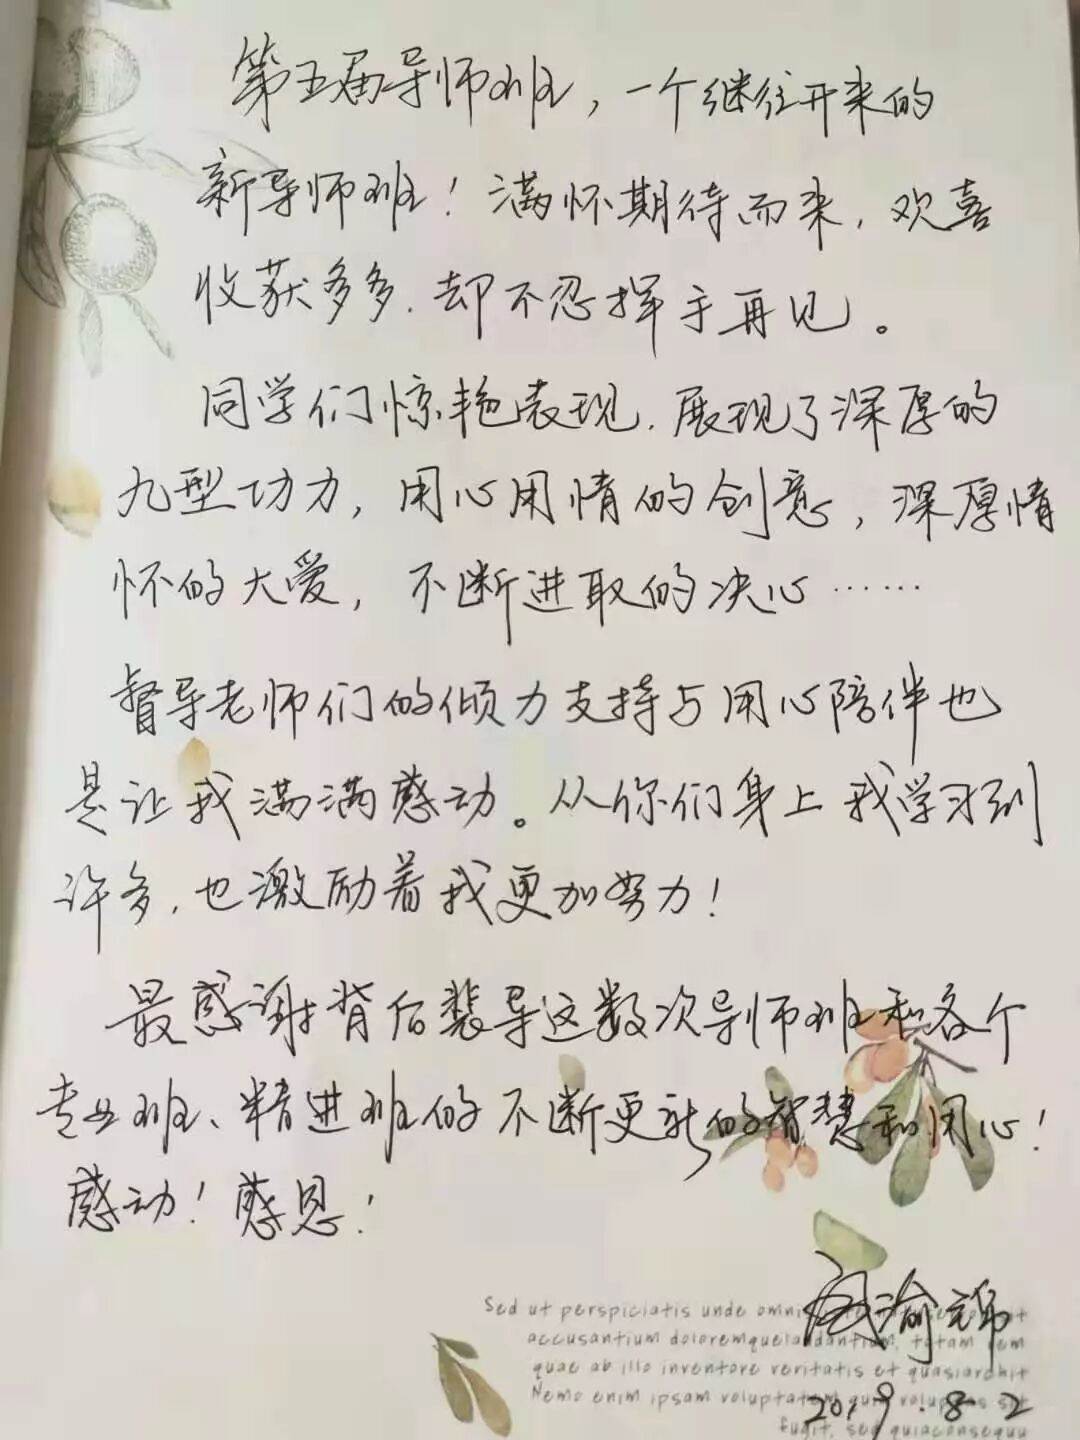 第五届导师班，一个继往开来的
新导师班！满怀期待而来，欢喜
收获多多，却不忍挥手再见。
同学们惊艳表现，展现了深厚的
九型功力，用心用情的创意，深厚情
怀的大爱，不断进取的决心……
督导老师们的倾力支持与用心陪伴也
是让我满满感动。从你们身上我学习到
许多，也激励着我更加努力！
最感谢背后裴导这数次导师班和各个
专业班、精进班的不断更新的智慧和用心！
感动！感恩！
渝锦
Sed ut perspiciatis unde omnis
accusantium doloremque laudantium, totam rem
quae ab illo inventore veritatis et quasi archit
Nemo enim ipsam voluptatem quia voluptas sit
fugit, sed quia consequu
2019.8.2